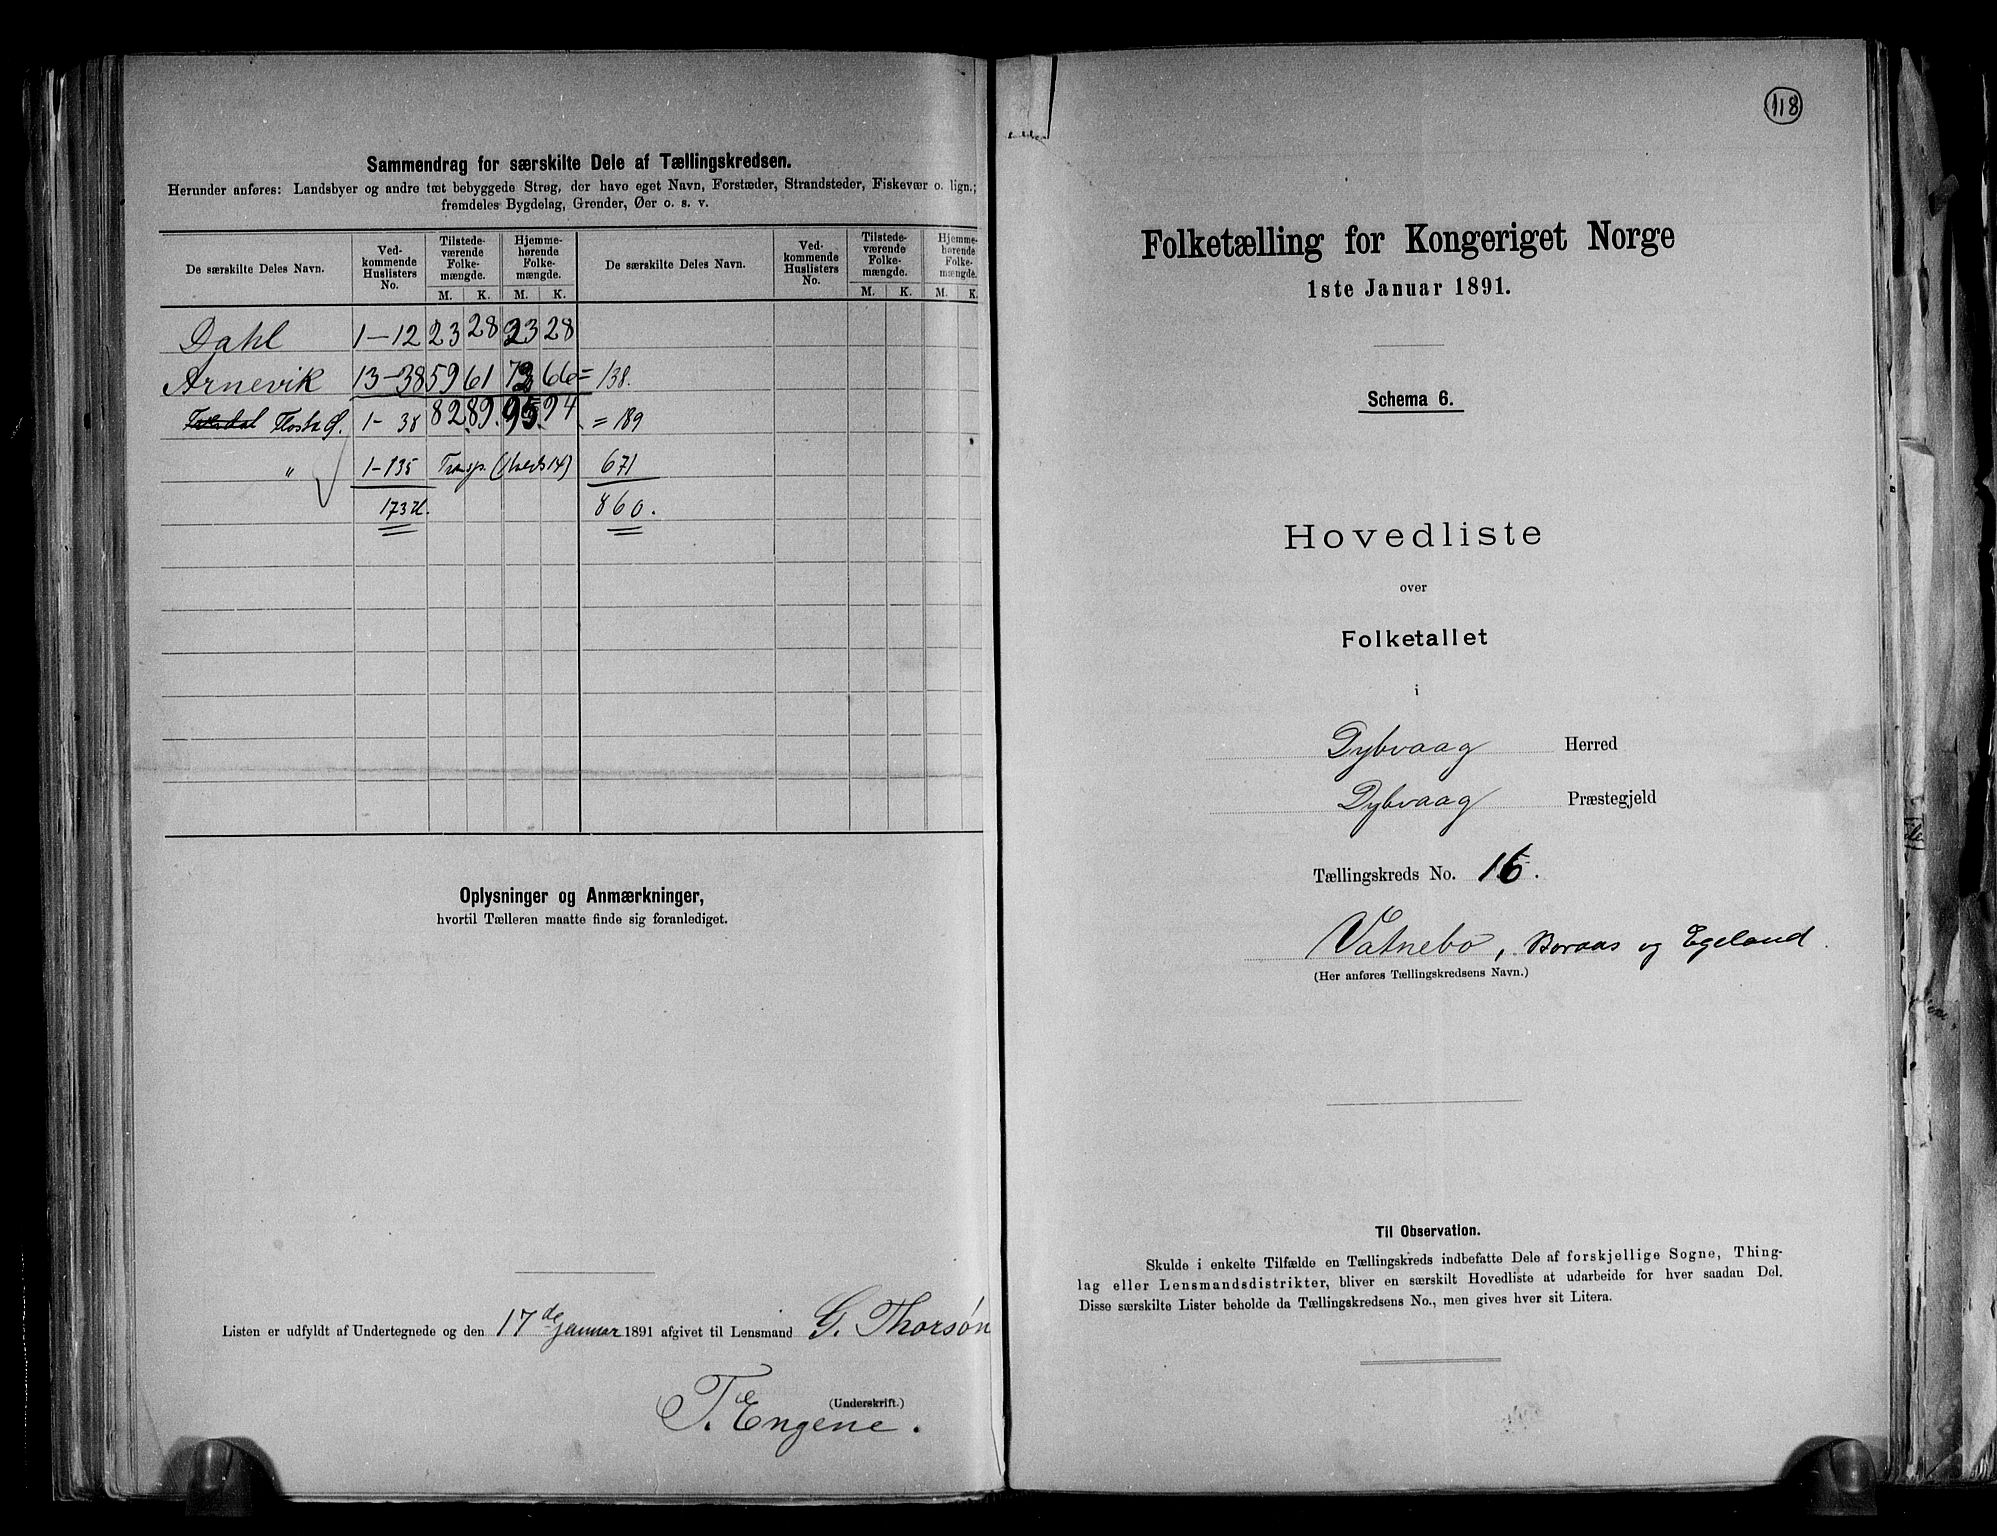 Sammendrag for særskilte Dele af Tællingskredsen.
Herunder anføres: Landsbyer og andre tæt bebyggede Strøg, der have eget Navn, Forstæder, Strandsteder, Fiskevær o. lign.;
fremdeles Bygdelag, Grender, Øer o. s. v.
De særskilte Deles Navn. Ved-kommende Huslisters No. Tilstede-værende Folke-mængde. Hjemme-hørende Folke-mængde. De særskilte Deles Navn. Ved-kommende Huslisters No. Tilstede-værende Folke-mængde. Hjemme-hørende Folke-mængde.
M. K. M. K. M. K. M. K.
Dahl 1-12 23 28 23 28
Arnevik 13-38 59 61 72 66 = 138.
1-38 82 89. 95. 94 = 189
" 1-135 Transp. 671
173 860.
Oplysninger og Anmærkninger,
hvortil Tælleren maatte finde sig foranlediget.
Listen er udfyldt af Undertegnede og den 17de januar 1891 afgivet til Lensmand G. Thorsøn
(Underskrift.)
T. Engene.
118
Folketælling for Kongeriget Norge
1ste Januar 1891.
Schema 6.
Hovedliste
over
Folketallet
i
Dybvaag Herred
Dybvaag Præstegjeld
Tællingskreds No. 16.
Vatnebo, Boraas og Egeland.
(Her anføres Tællingskredsens Navn.)
Til Observation.
Skulde i enkelte Tilfælde en Tællingskreds indbefatte Dele af forskjellige Sogne, Thing-
lag eller Lensmandsdistrikter, bliver en særskilt Hovedliste at udarbeide for hver saadan Del.
Disse særskilte Lister beholde da Tællingskredsens No., men gives hver sit Litera.